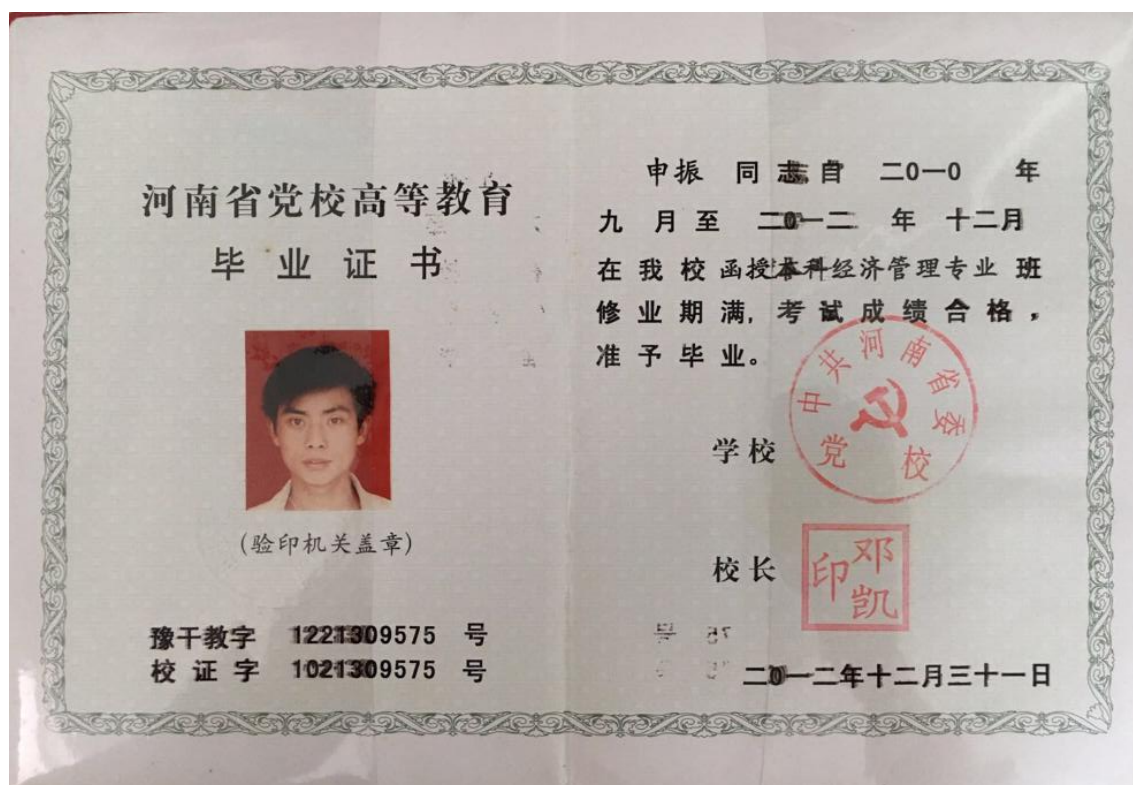 河南省党校高等教育
毕业证书
(验印机关盖章)
豫干教字 1221309575 号
校证字 1021309575 号
申振 同志自 二0一0 年
九 月至 二0一二 年 十二月
在我校函授本科经济管理专业班
修业期满,考试成绩合格,
准予毕业。
中共河南省委
党校
学校
校长
邓凯
印
二0一二年十二月三十一日